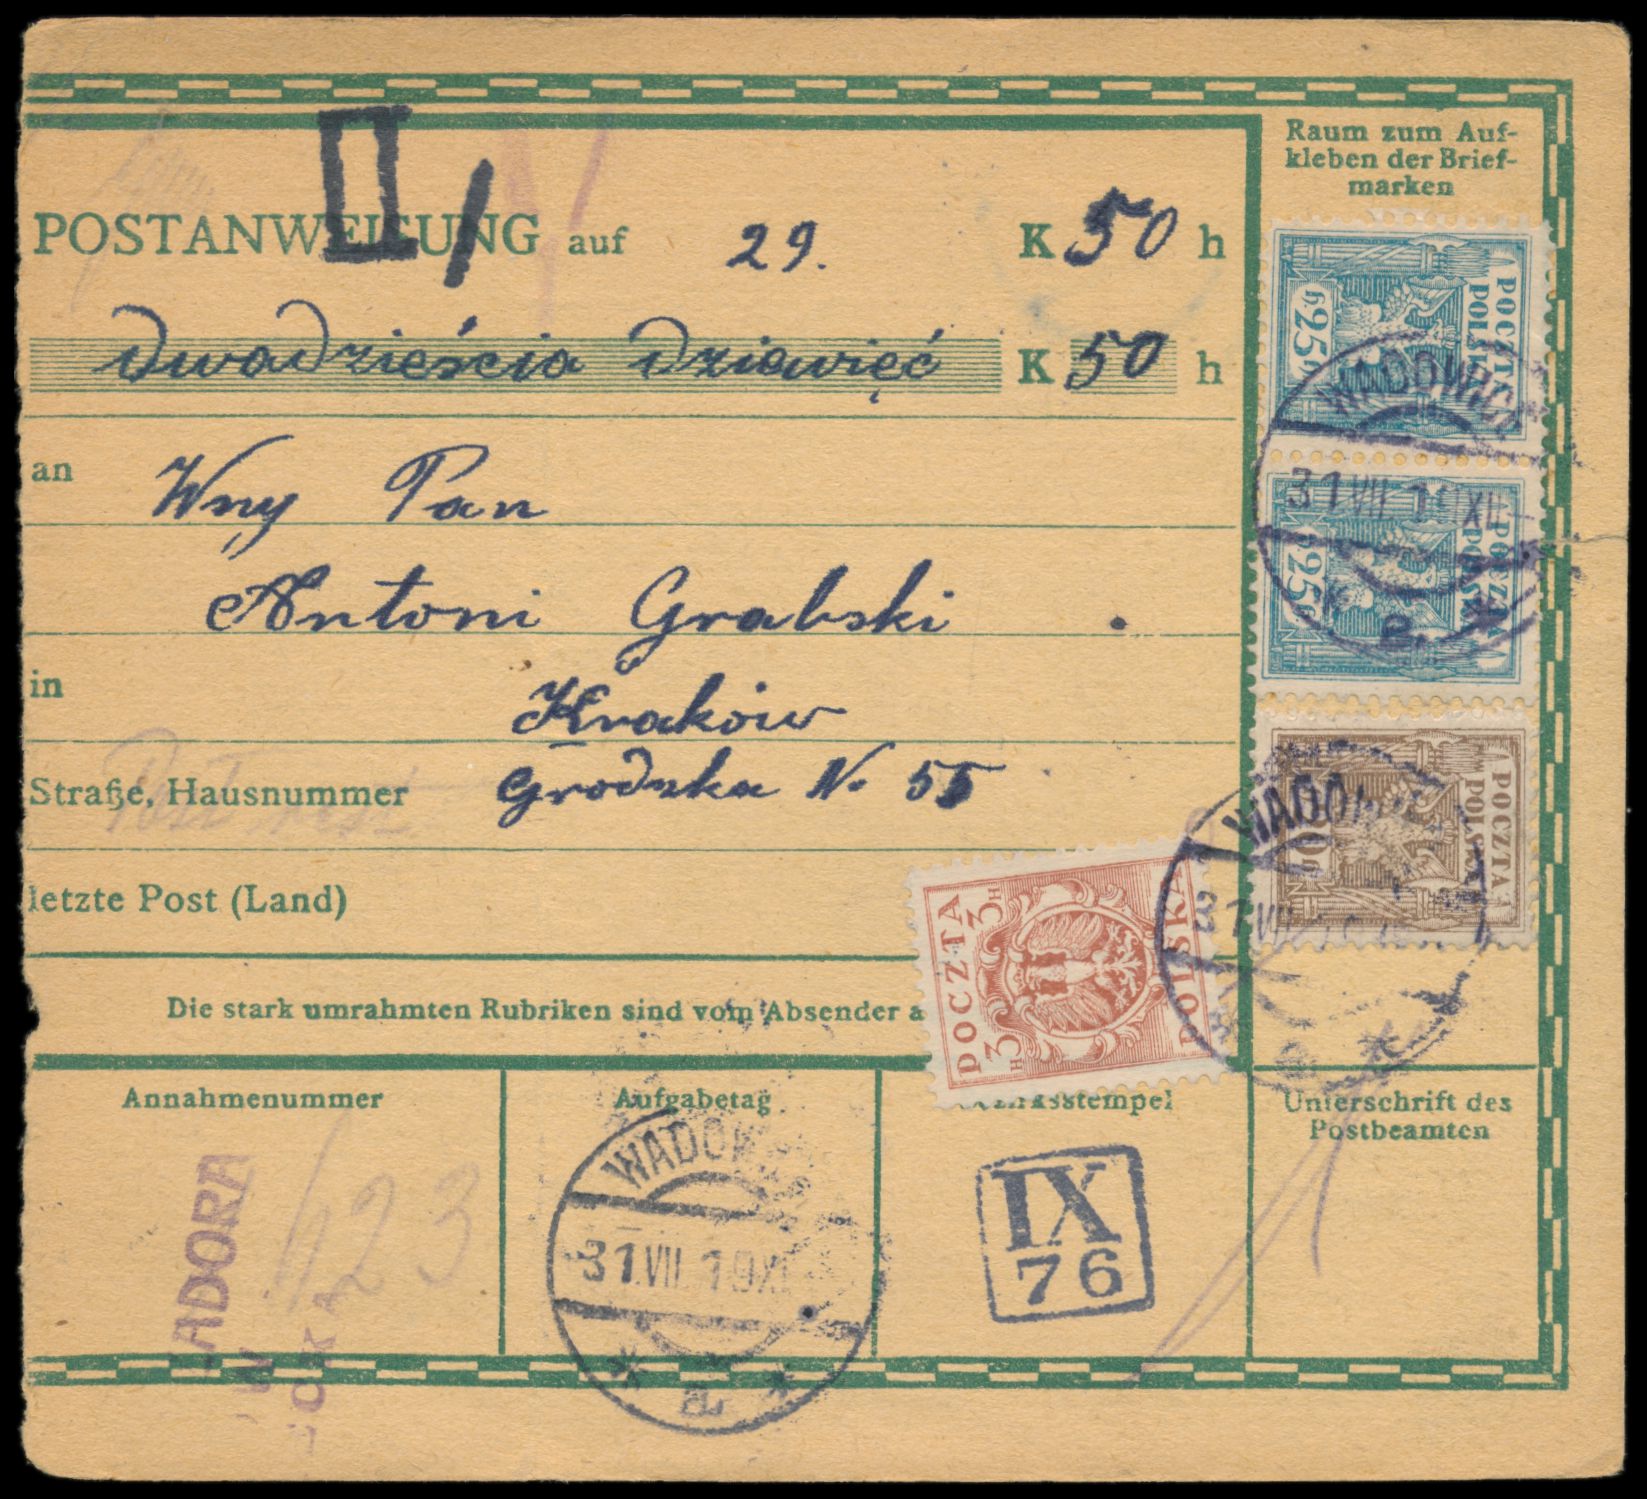 Raum zum Auf-
kleben der Brief-
marken
II/
POSTANWEISUNG auf 29. K 50 h
dwadzieścia dziewięć K 50 h
an Wny Pan
Antoni Grabski
in Kraków
Straße, Hausnummer Grodzka No 55
letzte Post (Land)
Die stark umrahmten Rubriken sind vom Absender a
POCZTA POLSKA
h. 25 h.
POCZTA POLSKA
25
POCZTA POLSKA
POCZTA POLSKA
3 H 3 H
WADOWIC
31 VII 19 XII
* a. *
WADOW
31 VII
Annahmenummer
423
Aufgabetag
WADOW
31.VII.19 XI
* a. *
IX
76
Unterschrift des
Postbeamten
ADORA